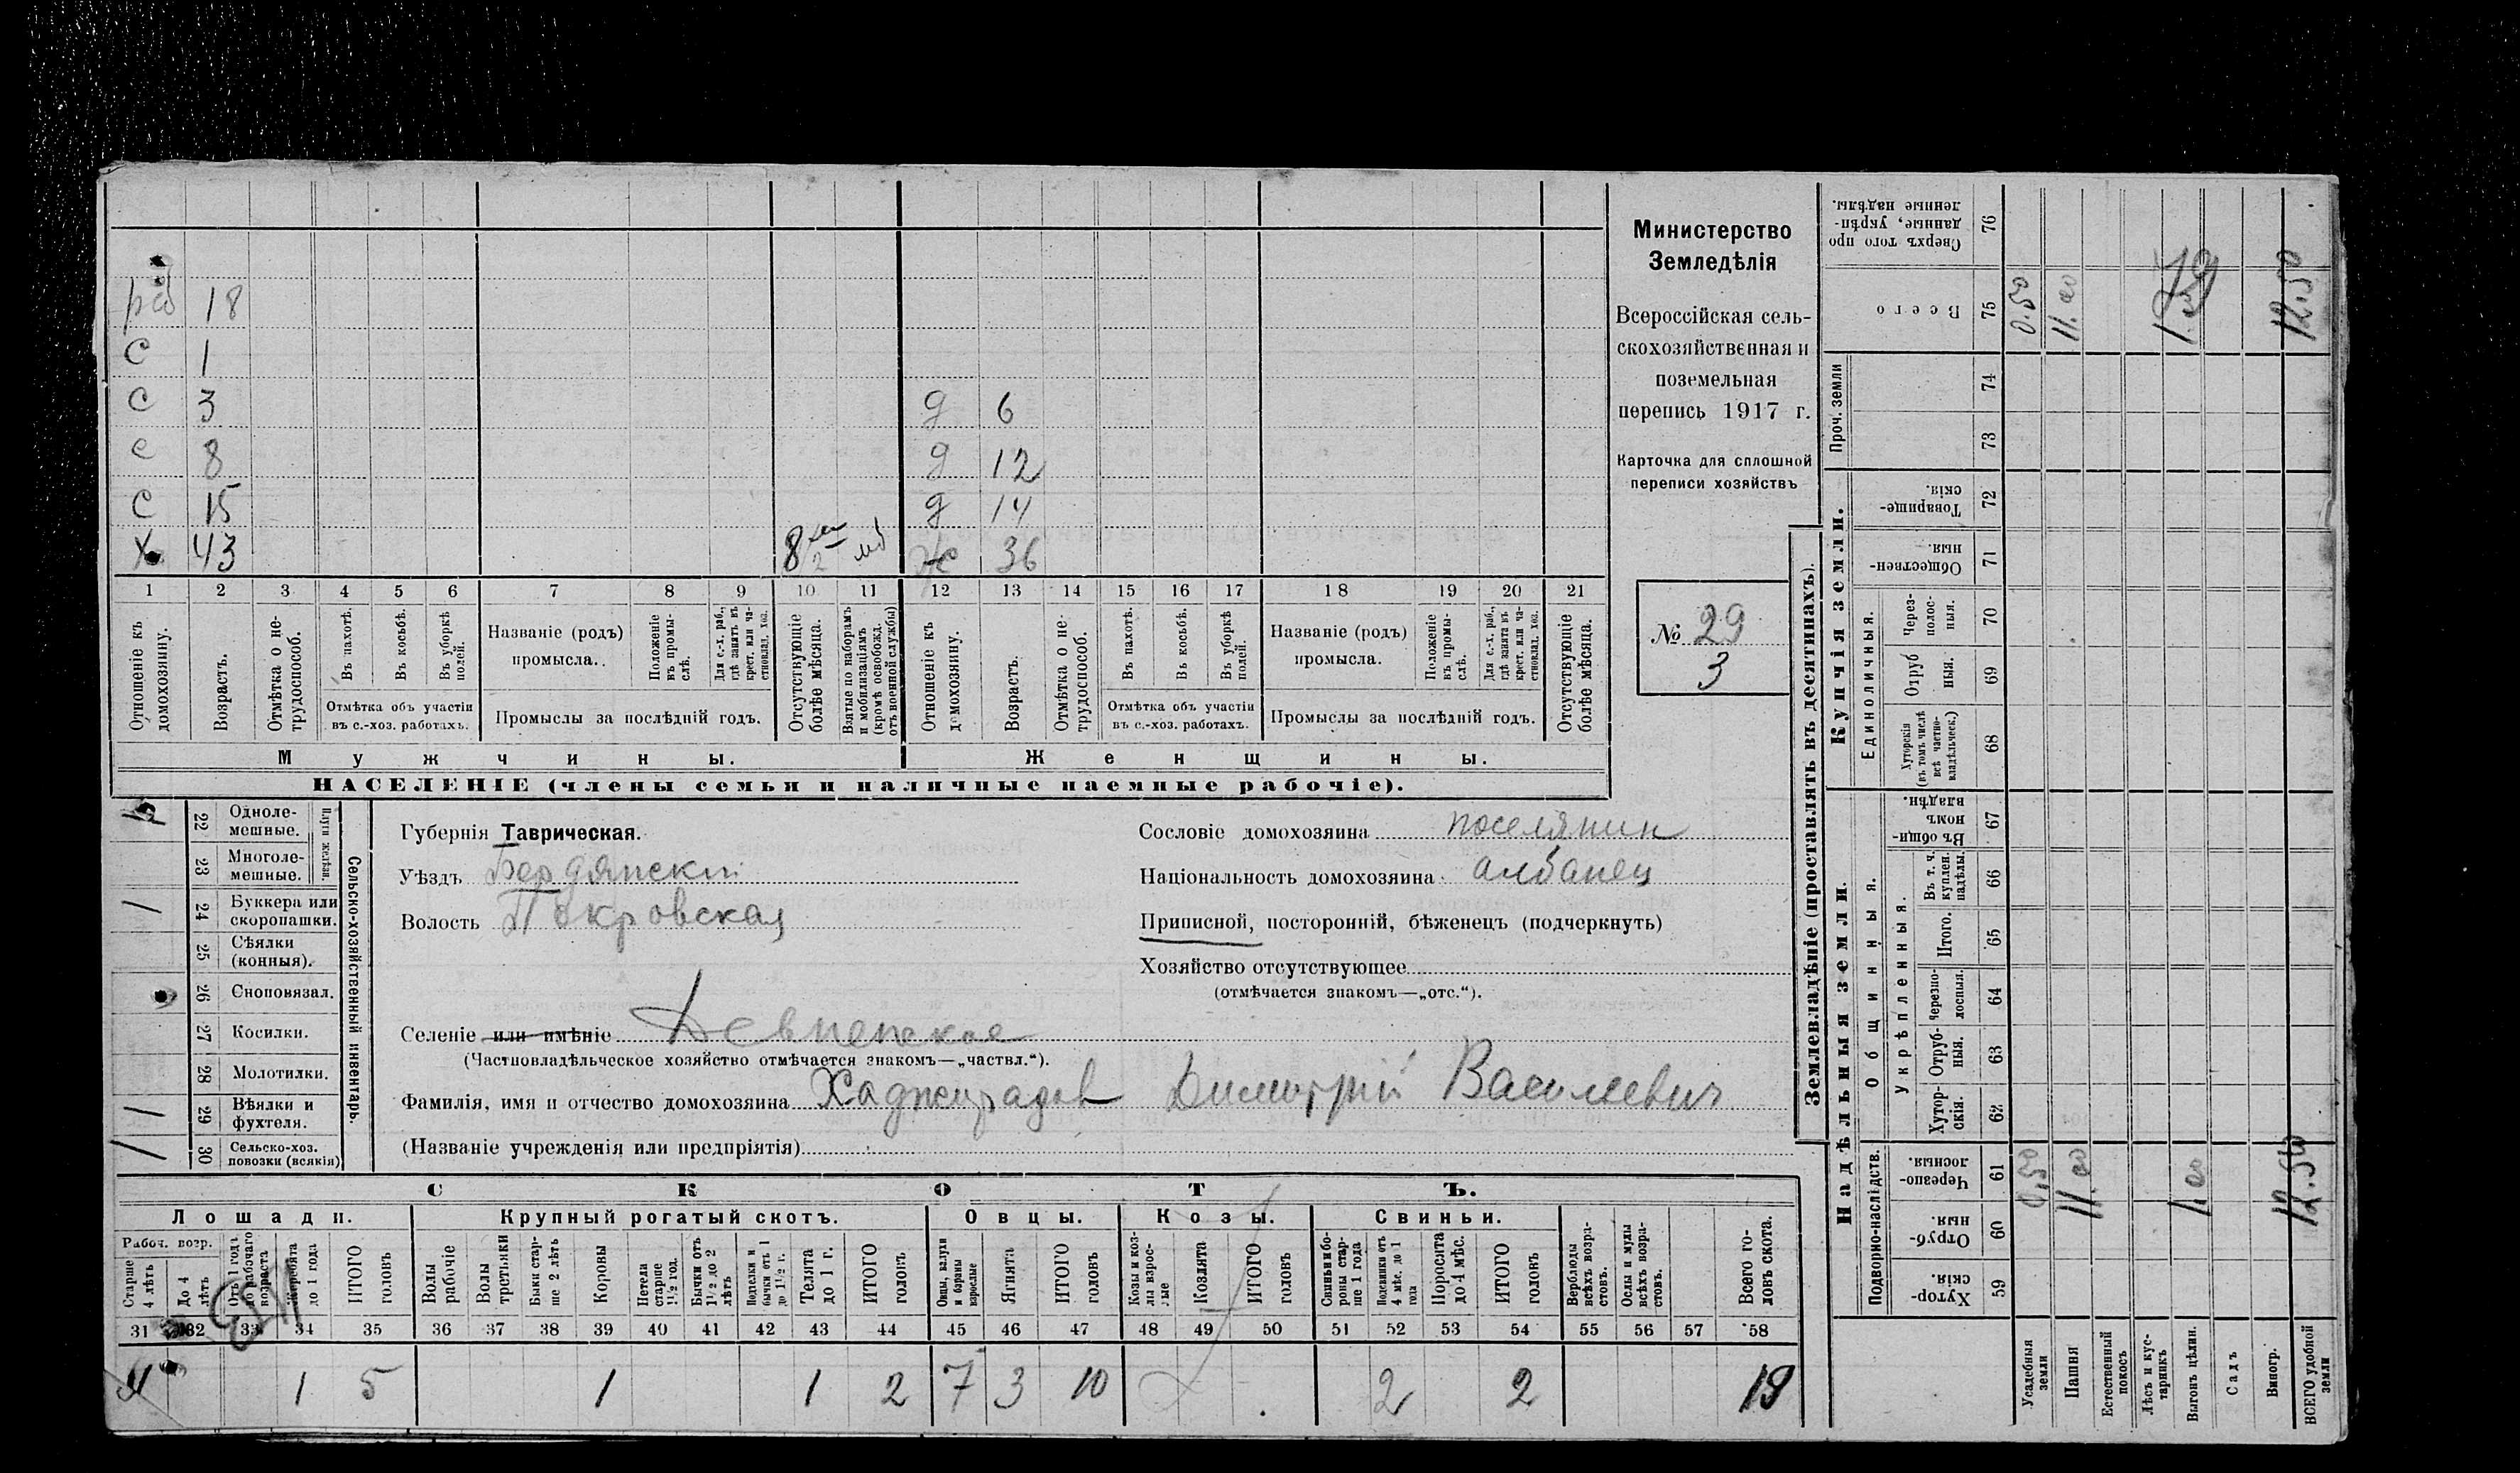 раб 18
С 1
С 3 д 6
С 8 д 12
С 15 д 14
Х 43 8 2 мб Ж 36
1 2 3 4 5 6 7 8 9 10 11 12 13 14 15 16 17 18 19 20 21
Отношеніе къ домохозяину.
Возрастъ.
Отмѣтка о не-трудоспособ.
Въ пахотѣ.
Въ косьбѣ.
Въ уборкѣ полей.
Отмѣтка объ участіи
въ с.-хоз. работахъ.
Названіе (родъ)
промысла..
Положеніе въ промы-слѣ.
Для с.-х. раб., гдѣ занятъ въ крест. или ча-стновлад. хоз.
Промыслы за послѣдній годъ.
Отсутствующіе болѣе мѣсяца.
Взятые по наборамъ и мобилизаціямъ (кромѣ освобожд. отъ военной службы)
Отношеніе къ домохозяину.
Возрастъ.
Отмѣтка о не-трудоспособ.
Въ пахотѣ.
Въ косьбѣ.
Въ уборкѣ полей.
Отмѣтка объ участіи
въ с.-хоз. работахъ.
Названіе (родъ)
промысла.
Положеніе въ промы-слѣ.
Для с.-х. раб., гдѣ занята въ крест. или ча-стновлад. хоз.
Промыслы за послѣдній годъ.
Отсутствующіе болѣе мѣсяца.
Мужчины. Женщины.
НАСЕЛЕНІЕ (члены семьи и наличные наемные рабочіе).
Министерство
Земледѣлія
Всероссійская сель-
скохозяйственная и
поземельная
перепись 1917 г.
Карточка для сплошной
переписи хозяйствъ
№ 29
3
Сельско-хозяйственный инвентарь.
Плуги желѣзн.
22 Одноле-мешные.
23 Многоле-мешные.
/ 24 Буккера или скоропашки.
25 Сѣялки (конныя).
26 Сноповязал.
27 Косилки.
28 Молотилки.
/ 29 Вѣялки и фухтеля.
/ 30 Сельско-хоз. повозки (всякія)
Губернія Таврическая.
Уѣздъ Бердянскій
Волость Покровская
Сословіе домохозяина поселянин
Національность домохозяина албанец
Приписной, посторонній, бѣженецъ (подчеркнуть)
Хозяйство отсутствующее
(отмѣчается знакомъ—„отс.“).
Селеніе или имѣніе Девненское
(Частновладѣльческое хозяйство отмѣчается знакомъ—„частвл.“).
Фамилія, имя и отчество домохозяина Хаджирадов Димитрий Василевич
(Названіе учрежденія или предпріятія)
СКОТЪ.
Лошади. Крупный рогатый скотъ. Овцы. Козы. Свиньи.
Рабоч. возр.
Старше 4 лѣтъ
До 4 лѣтъ
Отъ 1 года до рабочаго возраста
Жеребята до 1 года
ИТОГО головъ
Волы рабочіе
Волы третьяки
Быки стар-ше 2 лѣтъ
Коровы
Нетела старше 1½ год.
Бычки отъ 1½ до 2 лѣтъ
Подтелки и бычки отъ 1 до 1½ г.
Телята до 1 г.
ИТОГО головъ
Овцы, валухи и бараны взрослые
Ягнята
ИТОГО головъ
Козы и коз-лы взрос-лые
Козлята
ИТОГО головъ
Свиньи и бо-ровы стар-ше 1 года
Подсвинки отъ 4 мѣс. до 1 года
Поросята до 4 мѣс.
ИТОГО головъ
Верблюды всѣхъ возра-стовъ.
Ослы и мулы всѣхъ возра-стовъ.
Всего го-ловъ скота.
31 32 33 34 35 36 37 38 39 40 41 42 43 44 45 46 47 48 49 50 51 52 53 54 55 56 57 58
4 1 5 1 1 2 7 3 10 2 2 19
Землевладѣніе (проставлять въ десятинахъ).
Купчія земли.
Надѣльныя земли.
Сверхъ того про-данные, укрѣп-ленные надѣлы. 76
Всего 75 0.50 11.00 12.50
Проч. земли 74
73
Товарище-скія. 72
Обществен-ныя. 71
Единоличныя.
Через-полос-ныя. 70
Отруб-ныя. 69
Хуторскія (въ томъ числѣ всѣ частно-владѣльческ.) 68
Общинныя.
Въ общин-номъ владѣн. 67
Укрѣпленныя.
Въ т. ч. куплен. надѣлы. 66
Итого. 65
Черезпо-лосныя. 64
Отруб-ныя. 63
Хутор-скія. 62
Подворно-наслѣдств.
Черезпо-лосныя. 61 0,50 11.00 1.00 12.50
Отруб-ныя. 60
Хутор-скія. 59
Усадебныя земли
Пашня
Естественный покосъ
Лѣсъ и кус-тарникъ
Выгонъ цѣлин.
Садъ
Виногр.
ВСЕГО удобной земли